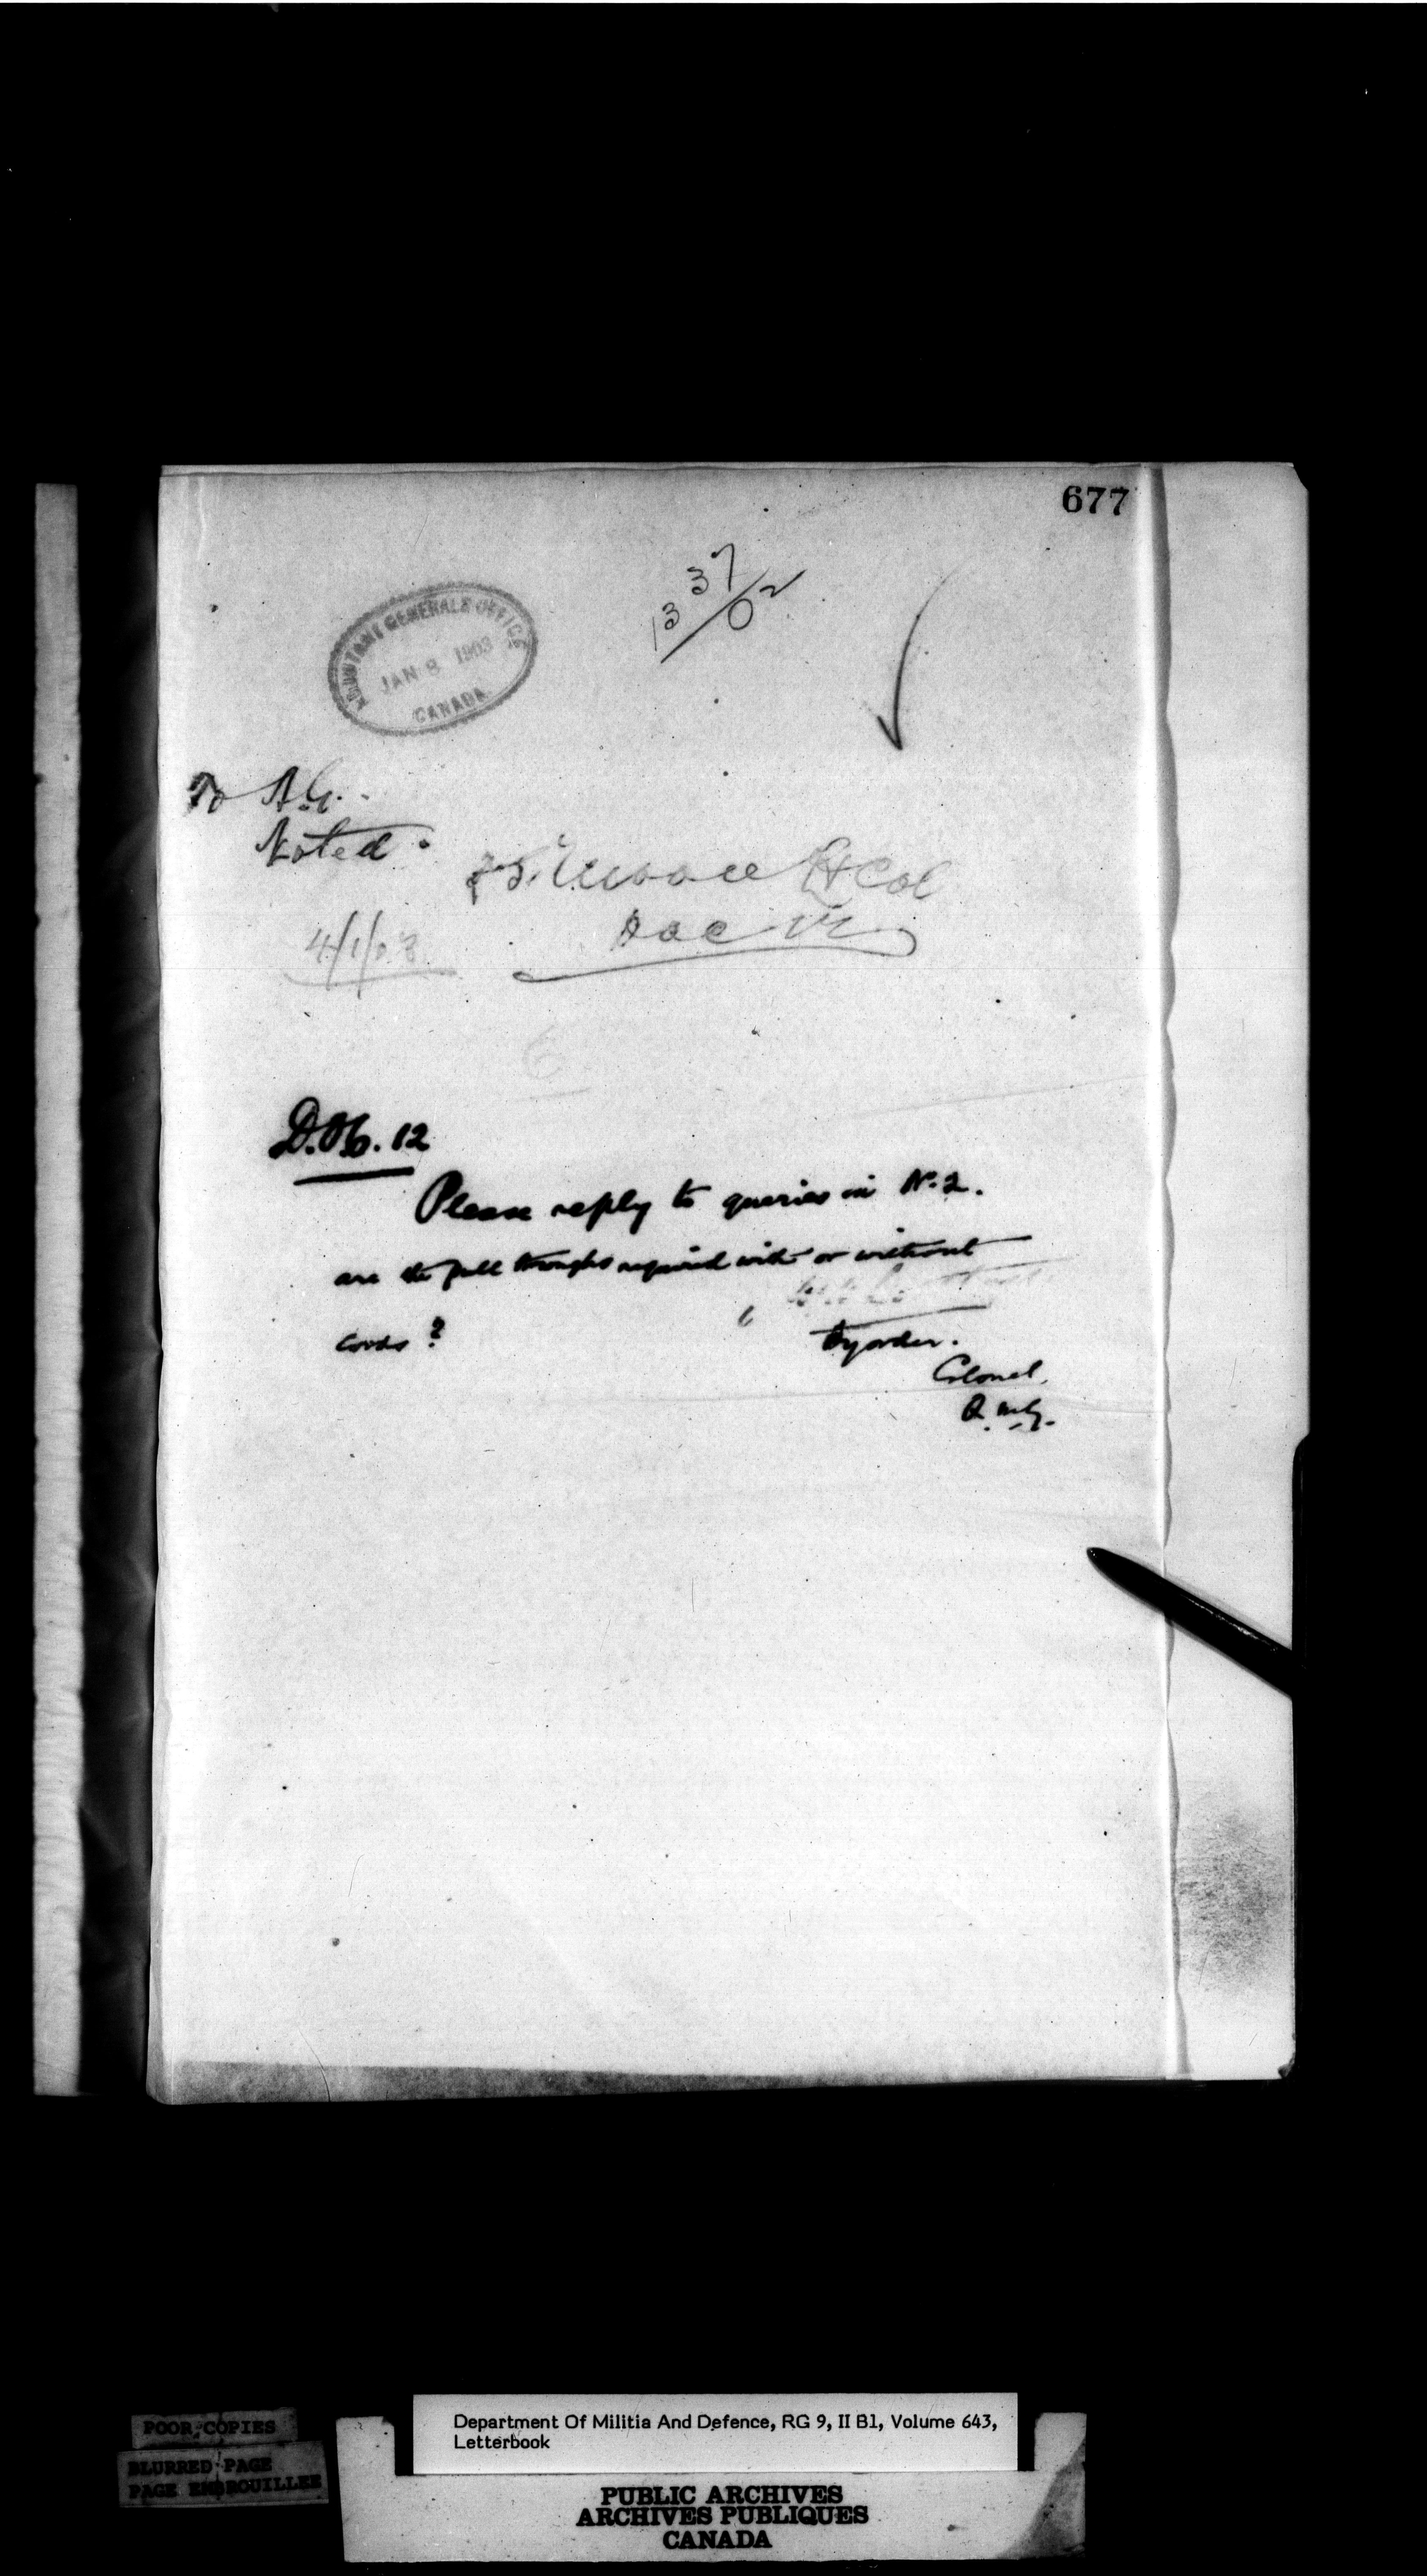 677
1337/02
ADJUTANT GENERALS OFFICE
JAN 8 1903
CANADA
To A.G.
Noted.
Lt Col
4/1/03
6
D.O.C. 12
Please reply to queries in No. 2.
are the pull throughs required with or without
cords ?
By order.
Colonel.
Q.M.G.
POOR COPIES
BLURRED PAGE
PAGE EMBROUILLEE
Department Of Militia And Defence, RG 9, II B1, Volume 643,
Letterbook
PUBLIC ARCHIVES
ARCHIVES PUBLIQUES
CANADA